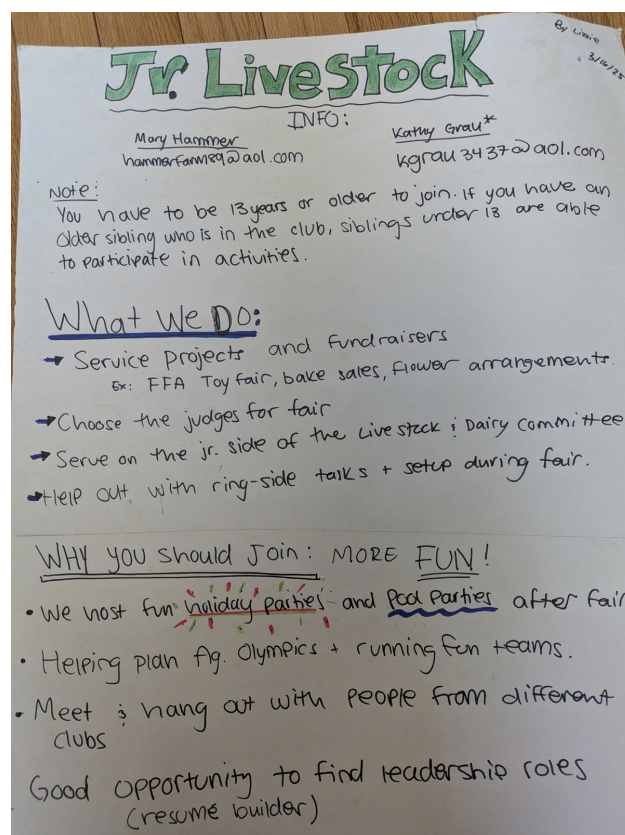 By Lizzie
3/16/25
Jr. Livestock
INFO:
Mary Hammer
hammerfarm89@aol.com
Kathy Grau*
kgrau3437@aol.com
Note:
You have to be 13 years or older to join. If you have an
older sibling who is in the club, siblings under 13 are able
to participate in activities.
What We DO:
→ Service projects and fundraisers
Ex: FFA Toy fair, bake sales, flower arrangements.
→ Choose the judges for fair
→ Serve on the jr. side of the Livestock & Dairy Committee
→ Help out with ring-side tasks + setup during fair.
WHY you should Join: MORE FUN!
• We host fun holiday parties and Pool Parties after fair
• Helping plan Ag. Olympics + running fun teams.
• Meet & hang out with people from different
clubs
Good opportunity to find leadership roles
(resumé builder)